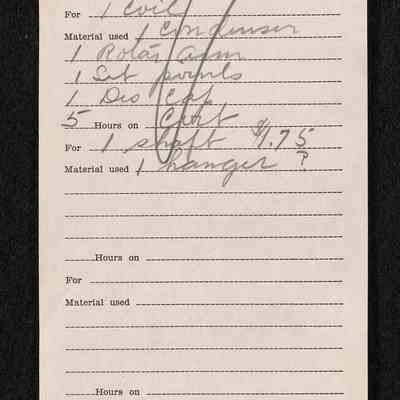 For 1 Coil
Material used 1 Condenser
1 Rotar arm
1 Set points
1 Dis Cap
5 Hours on Cart
For 1 shaft $1.75
Material used 1 hanger ?
Hours on
For
Material used
Hours on